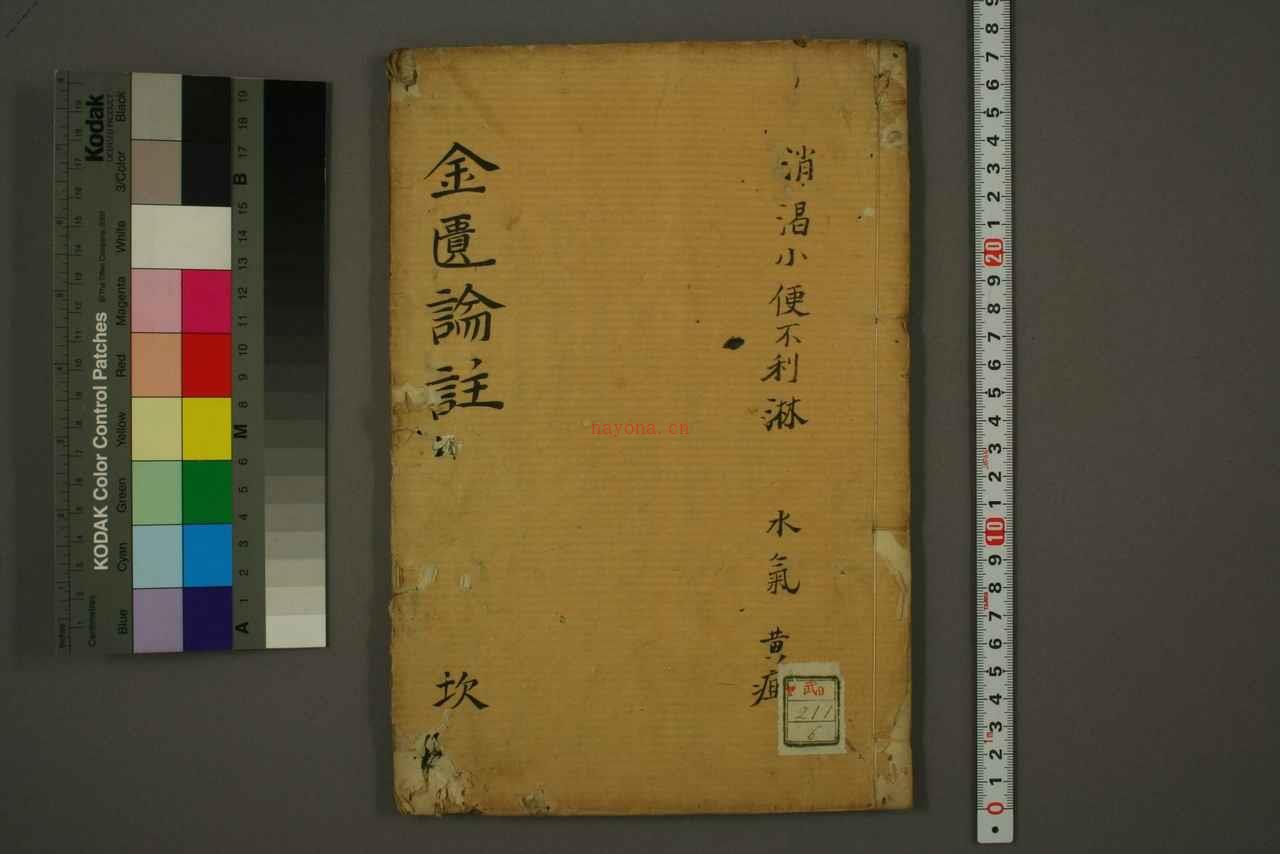 消渴小便不利淋
水氣
黄疸
金匱論註
坎
武日
211
6
hayona.cn
KODAK Color Control Patches
Kodak
Blue
Cyan
Green
Yellow
Red
Magenta
White
3/Color
Black
Centimetres
Inches
A 1 2 3 4 5 6 M 8 9 10 11 12 13 14 15 B 17 18 19
0 1 2 3 4 5 6 7 8 9 10 1 2 3 4 5 6 7 8 9 20 1 2 3 4 5 6 7 8 9